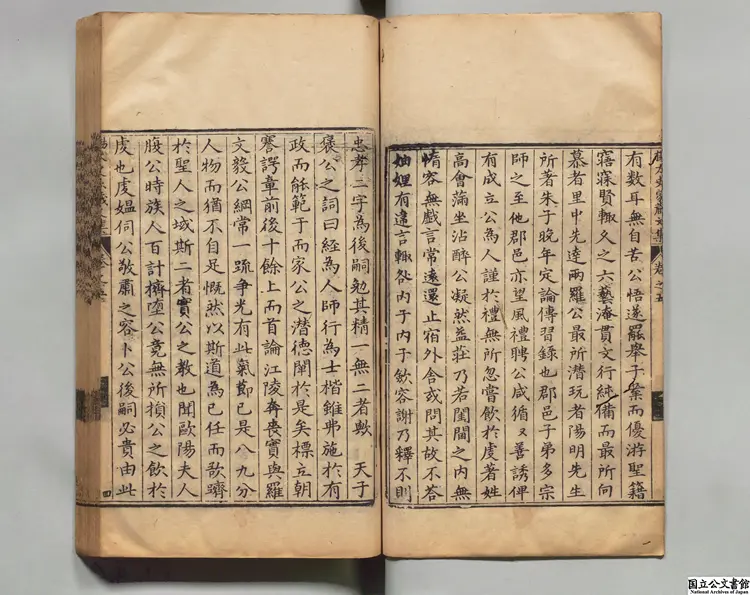 有数耳無自苦公悟遂罷舉子業而優游聖籍
寤寐賢輙久之六藝淹貫文行純備而最所向
慕者里中先達兩羅公最所潜玩者陽明先生
所著朱子晚年定論傳習錄也郡邑子弟多宗
師之至他郡邑亦望風禮聘公咸循〻善誘俾
有成立公為人謹於禮無所忽嘗飲於虞著姓
高會蒲坐沾醉公凝然益莊乃若閨閫之内無
惰容無戲言常遠還止宿外舍或問其故不荅
妯娌有違言輙咎内子内子飲容謝乃釋不則
忠孝二字為後嗣勉其精一無二者歟 天子
褒公之詞曰經為人師行為士楷雖弗施於有
政而能範于而家公之潜德闡於是矣標立朝
謇諤章前後十餘上而首論江陵奔喪實與羅
文毅公綱常一䟽争光有此氣節已是八九分
人物而猶不自足慨然以斯道為已任而歌躋
於聖人之域斯二者實公之教也聞歐陽夫人
腹公時族人百計擠壓公竟無所損公之飲於
虞也虞媪伺公敬肅之容卜公後嗣必貴由此
卷之五
四
国立公文書館
National Archives of Japan